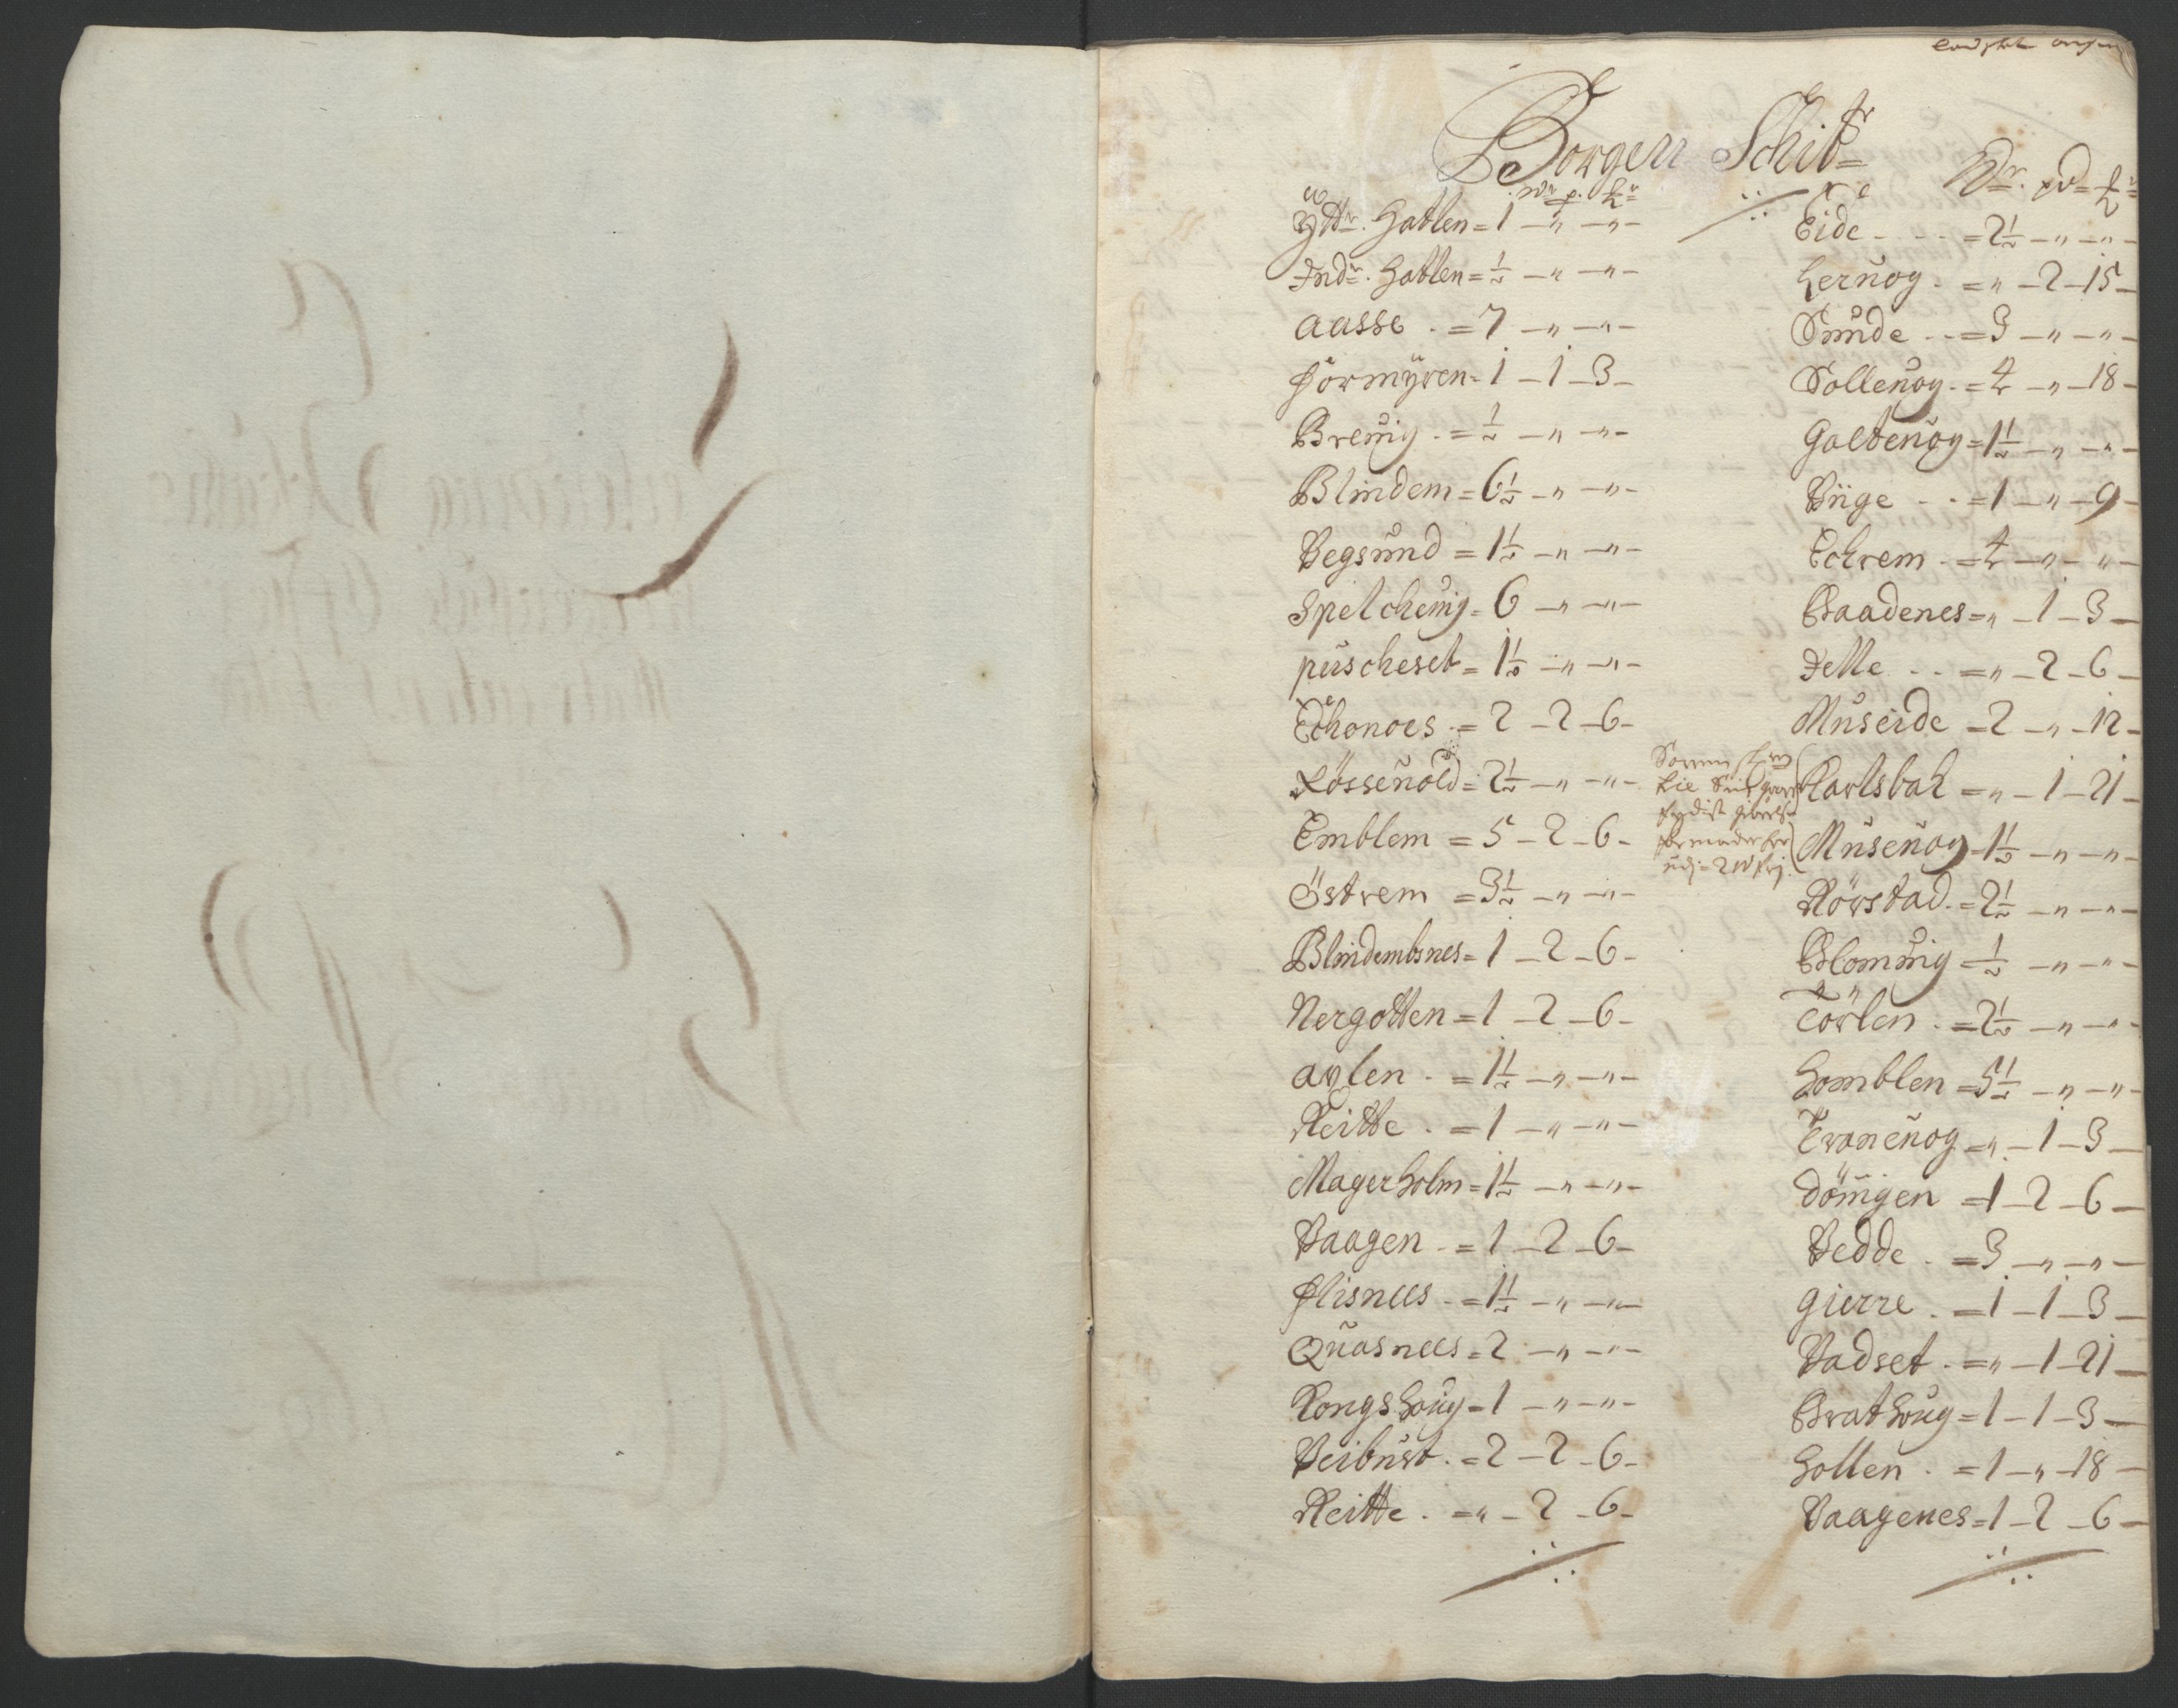 Borgen Schibr
Wr p. ℔r
Yttr. Hatlen = 1 — „ — „ —
Indr. Hatlen = ½ — „ — „ —
Aasse . = 7 — „ — „ —
Formÿren = 1 — 1 — 3 —
Breuig . = ½ — „ — „ —
Blindem = 6½ — „ — „ —
Vegsund = 1½ — „ — „ —
Spelcheuig = 6 — „ — „ —
puscheset = 1½ — „ — „ —
Echonoes . = 2 — 2 — 6 —
Røsseuold = 2½ — „ — „ —
Emblem = 5 — 2 — 6 —
Östrem = 3½ — „ — „ —
Blindembsnes = 1 — 2 — 6 —
Nergotten = 1 — 2 — 6 —
Aylen . = 1½ — „ — „ —
Reitte . = 1 — „ — „ —
Magerholm = 1½ — „ — „ —
Vaagen . = 1 — 2 — 6 —
Flisnees . = 1½ — „ — „ —
Quasnees = 2 — „ — „ —
Kongshoug = 1 — „ — „ —
Veibust . = 2 — 2 — 6 —
Reitte . = „ — 2 — 6 —
Wr. pd ℔r
Eide . . . = 2½ — „ — „ —
Hernog . = „ — 2 — 15 —
Sunde . . = 3 — „ — „ —
Solleuog . = 4 — „ — 18 —
Galteuog = 1½ — „ — „ —
Viige . . = 1 — „ — 9 —
Echrem . = 4 — „ — „ —
Baadenes = „ — 1 — 3 —
Felle . . = „ — 2 — 6 —
Museide = 2 — „ — 12 —
Karlsbah = „ — 1 — 21 —
Museuog = 1½ — „ — „ —
Rörstad . = 2½ — „ — „ —
Blomuig = ½ — „ — „ —
Törlen . = 2½ — „ — „ —
Homblen = 5½ — „ — „ —
Traneuog = „ — 1 — 3 —
Dömgen = 1 — 2 — 6 —
Vedde . = 3 — „ — „ —
Gierre . = 1 — 1 — 3 —
Vadset . = „ — 1 — 21 —
Brathoug = 1 — 1 — 3 —
Hollen . = 1 — „ — 18 —
Vaagenes = 1 — 2 — 6 —